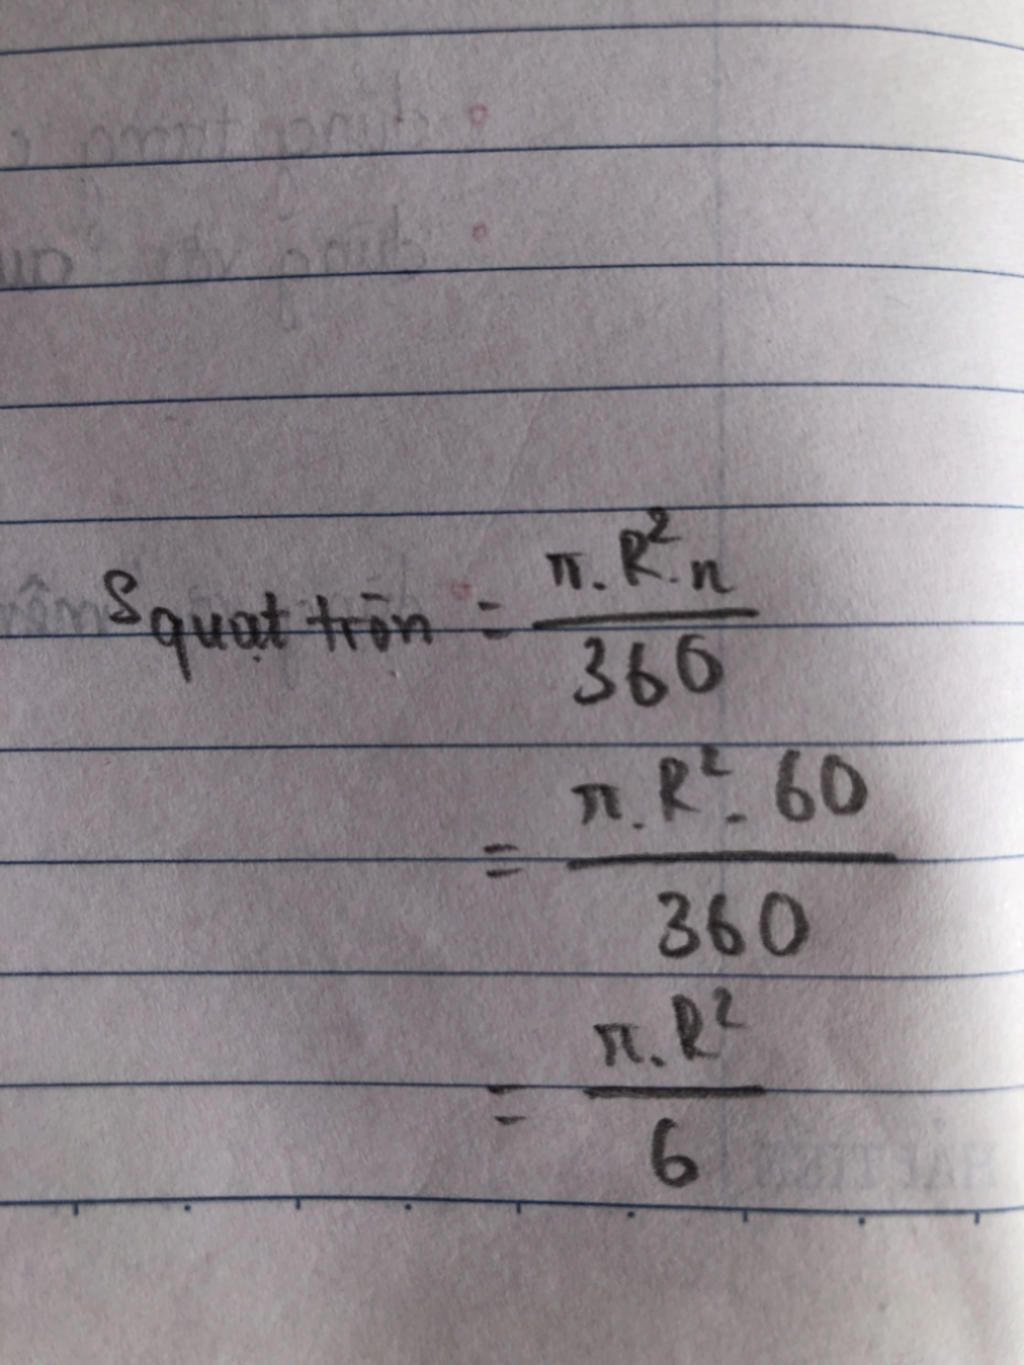 S quạt tròn = π.R².n / 360
= π.R².60 / 360
= π.R² / 6